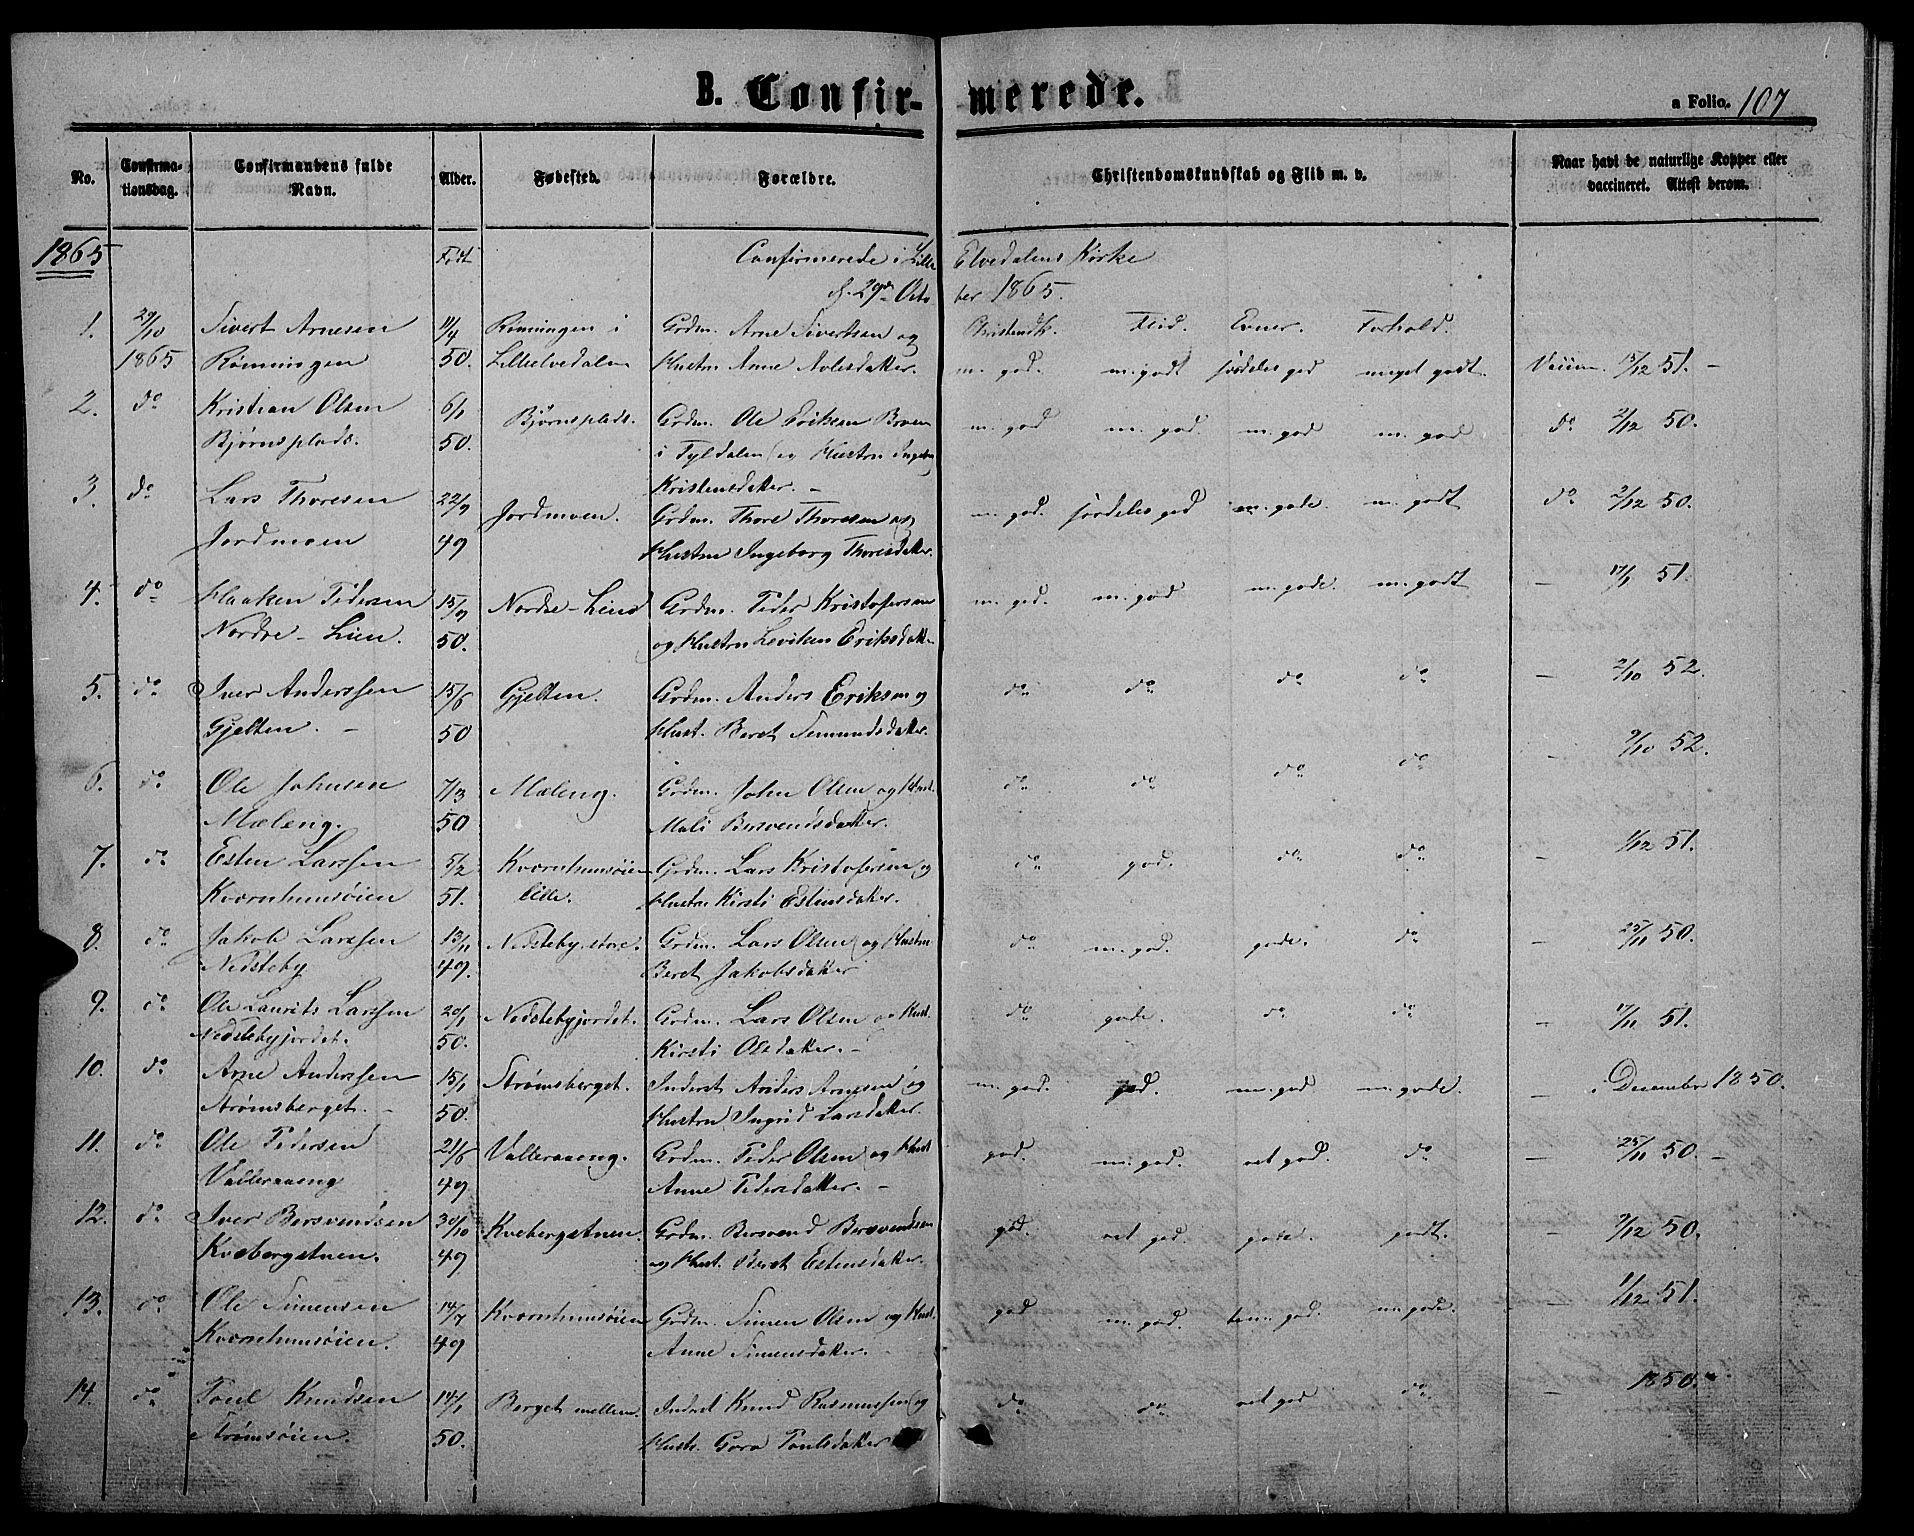 B. Confir- merede.
a Folio. 107
No. Confirma-tionsdag. Confirmandens fulde Navn. Alder. Fødested. Forældre. Christendomskundskab og Flid m. v. Naar havt de naturlige Kopper eller vaccineret. Attest derom.
1865 Født Confirmerede i Lille Elvedalens Kirke
d. 29de Octo ber 1865.
1. 29/10 Sivert Arnesen 11/4 Rønningen i Grdm. Arne Sivertsen og Christendk. Flid. Evner. Forhold.
1865 Rønningen 50. Lilleelvedalen Hustru Anne Nilsdatter. m. god. m. godt særdeles god meget godt. Vaccin. 15/12 51. -
2. do Kristian Olsen 6/1 Bjørnsplads. Grdm. Ole Eriksen Broen m. god m. god. m. god m. god do 2/12 50.
Bjørnsplads. 50. i Tyldalen og Hustru Ingebor
Kristensdatter. -
3. do Lars Thoresen 22/9 Jordmoen. Grdm. Thore Thoresen og m. god. særdeles god m. gode. m. godt do 2/12 50.
Jordmoen 49 Hustru Ingeborg Thoresdatter.
4. do Haaken Pedersen 15/9 Nordre-Lien Grdm. Peder Kristofersen m. god. m. god m. gode. m. godt - 17/1 51.
Nordre-Lien. 50. og Hustru Eriksdatter
5. do Iver Anderssen 15/6 Gjelten. Grdm. Anders Eriksen og do do do do - 2/10 52.
Gjelten. - 50 Hust. Beret Semundsdatter.
6. do Ole Johnsen 7/3 Mæleng. Grdm. John Olsen og Hust. do do do do - 9/10 52.
Mæleng. 50 Mali Bersvendsdatter.
7. do Esten Larssen 5/2 Kværnhusøien Grdm. Lars Kristofersen og do god. do do - 1/12 51.
Kværnhusøien 51. lille. Hustru Kirsti Estensdatter.
8. do Jakob Larssen 13/11 Nedsteby store. Grdm. Lars Olsen og Hustru do m. god. gode. do - 25/11 50.
Nedsteby 49. Beret Jakobsdatter
9. do Ole Laurits Larssen 20/1 Nedstebyjordet. Grdm. Lars Olsen og Hust. do gode. do do - 17/11 51.
Nedstebyjordet. 50. Kirsti Olsdatter. -
10. do Arne Anderssen 15/1 Strømsberget. Inderst Anders Arnesen og m. god. god. m. god m. gode. - December 1850.
Strømsberget. - 50. Hustru Ingrid Larsdatter.
11. do Ole Pedersen 21/6 Vølleraaeng. Grdm. Peder Olsen og Hust god. m. god. ret god. do - 25/11 50. -
Vølleraaeng 49 Anne Pedersdatter. -
12. do Iver Bersvendsen 30/10 Kvebergstuen. Grdm. Bersvend Bersvendsen god. ret god. gode. godt. - 9/12 50.
Kvebergstuen. 49 og Hust. Beret Estensdatter.
13. do Ole Simensen 14/7 Kværnhusøien Grdm. Simen Olsen og Hust. god m. god. god. m. gode. - 1/12 51.
Kværnhusøien. 49 Anne Simensdatter. -
14. do Poul Knudsen 14/1 Berget mellem. Inderst Knud Rasmussen og do do ret god do - 1850.
Strømsøien. 50. Hustr. Goro Poulsdatter